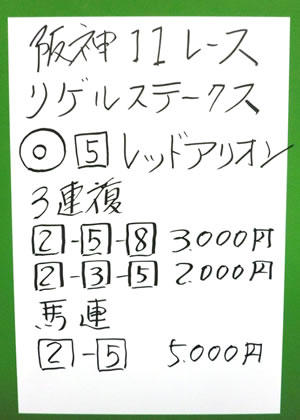 阪神11レース
リゲルステークス
◎ 5 レッドアリオン
3連複
2-5-8 3.000円
2-3-5 2.000円
馬連
2-5 5.000円